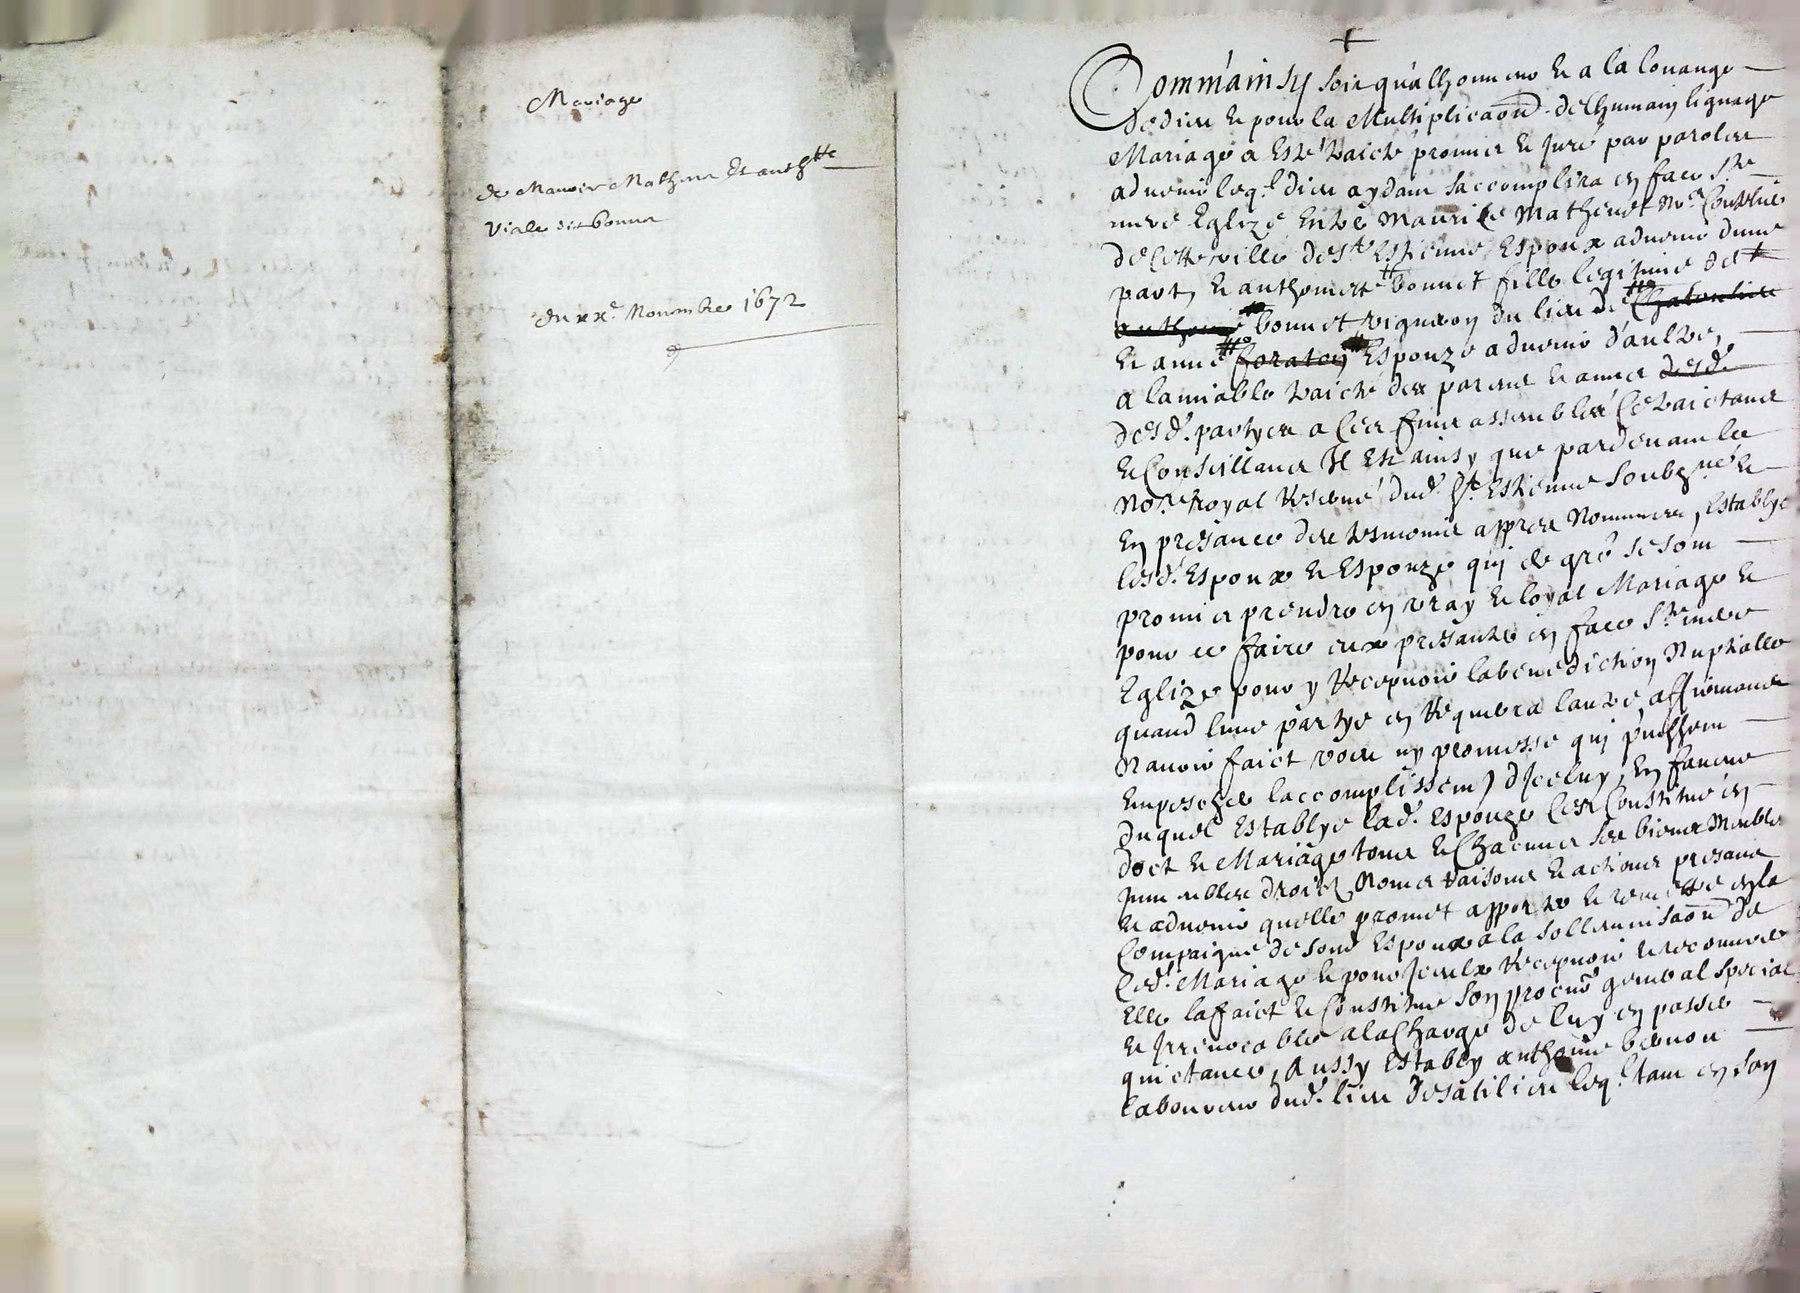 Mariage
de Mauris Mathenet et anthtte
Viale dit bonne
du xxe. Novembre 1672
+
Comm'ainsy soit qu'a lhonneur et a la louange
de dieu et pour la Multiplicaon de lhumain lignage
Mariage a esté traicté promis et juré par parolles
advenir leql. dieu aydant saccomplira en face Ste.
mere Eglize Entre Maurice Mathenet Mr. Cordelier
de cette ville de St Estienne Espoux advenir d'une
part, et anthomette bonnet fille legitime de
bonnet vigneron du lieu de Chatonlieu
et anne foraton Espouze advenir d'aultre,
a lamiable traicté des parens et amis desd.
desd. partyes a ces fins assemblés ce traictans
et Conseillans Il Est ainsy que pardevant le
Nore. royal reservé dud. St. Estienne soubzne. et
En presance des tesmoins appres Nommes, Establys
lesd. Espoux et Espouze qui de gré se sont
promis prendre en vray et loyal Mariage et
pour ce faire eux presanter en face Ste. mere
Eglize pour y Recepvoir la benediction Nuptialle
quand l'une partye en Requera lautre, affirmans
N'avoir faict voeu ny promesse qui puissent
Empescher laccomplissemt d'Iceluy, En faveur
duquel Establye lad. Espouze c'est Constitué en
doct et Mariage tous et Chacuns ses biens Meubles
Immeubles droicts Noms raisons et actions presans
et advenir quelle promet apporter et remettre en la
Compaigne de sond Espoux a la sollemnisaon de
ced. Mariage et pour Iceulx Recepvoir et recouvrer
Elle la faict et Constitue son procur general special
et Irrevocable a la Charge de luy en passer
quictance, Aussy Estably anthoine bernon
laboureur dud. lieu de Satilieu leql. tant en son